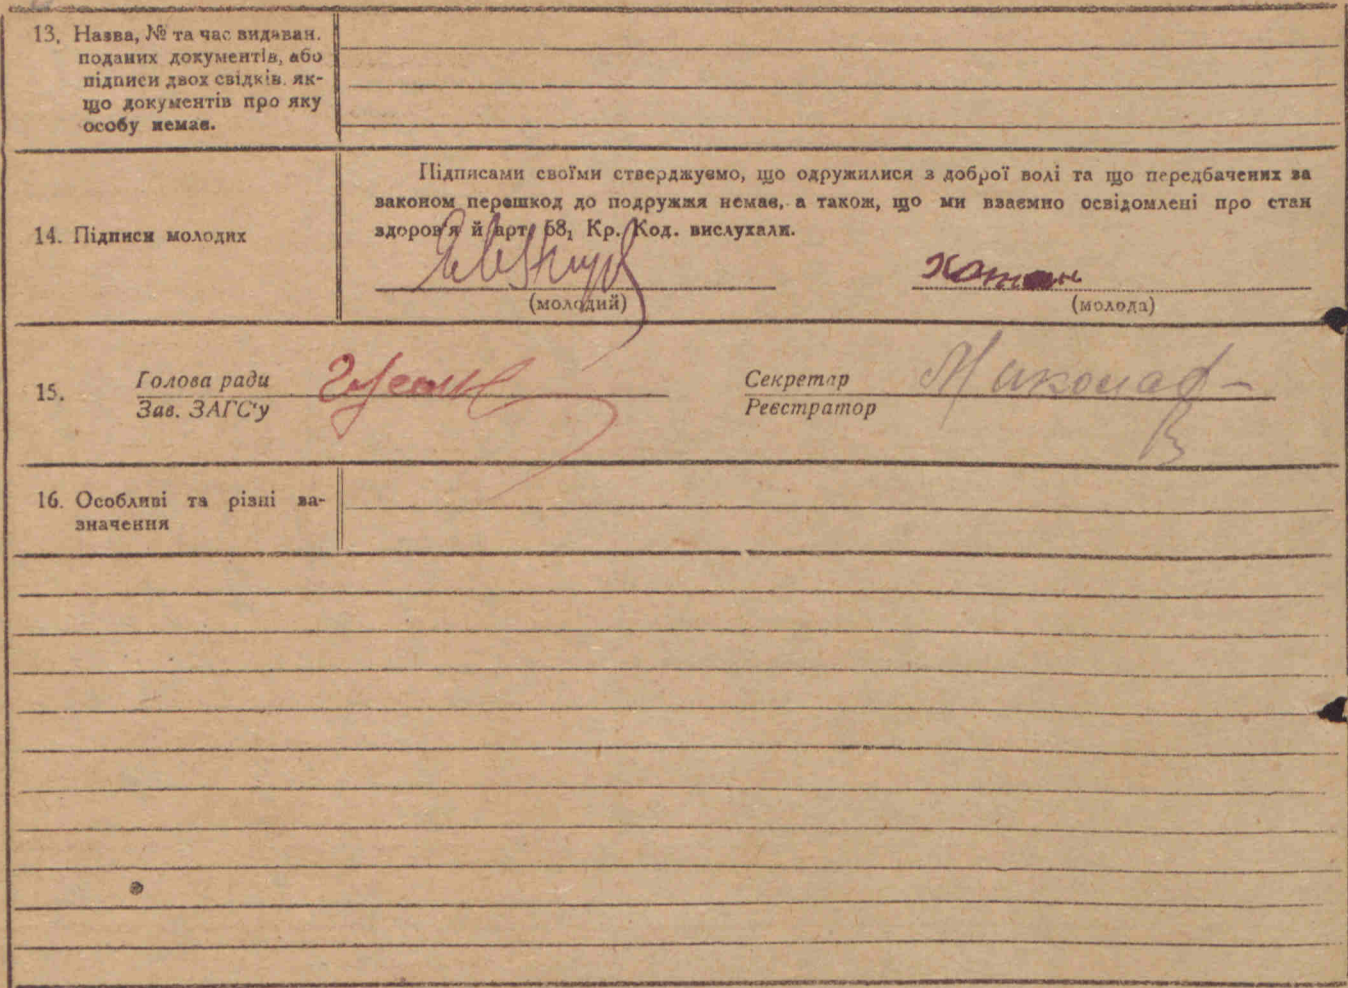 13. Назва, № та час видаван.
поданих документів, або
підписи двох свідків. як-
що документів про яку
особу немає.
Підписами своїми стверджуємо, що одружилися з доброї волі та що передбачених за
законом перешкод до подружжя немає, а також, що ми взаємно освідомлені про стан
14. Підписи молодих
здоров'я й арт. 58₁ Кр. Код. вислухали.
(молодий)
(молода)
15.
Голова ради
Зав. ЗАГС'у
Секретар
Реєстратор
16. Особливі та різні за-
значення